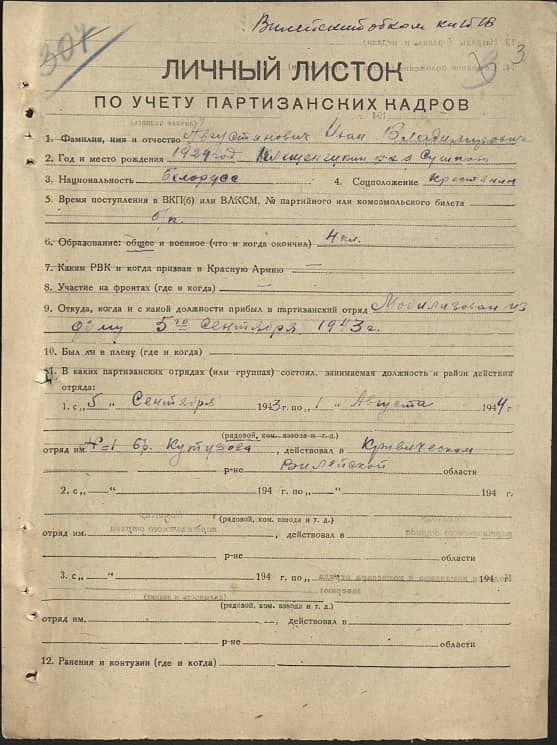 Вилейский обком КП(б)Б
307
3
ЛИЧНЫЙ ЛИСТОК
ПО УЧЕТУ ПАРТИЗАНСКИХ КАДРОВ
1. Фамилия, имя и отчество Августинович Иван Владимирович
2. Год и место рождения 1929 год
3. Национальность белорусс 4. Соцположение крестьянин
5. Время поступления в ВКП(б) или ВЛКСМ. № партийного или комсомольского билета
б п.
6. Образование: общее и военное (что и когда окончил) 4 кл.
7. Каким РВК и когда призван в Красную Армию —
8. Участие на фронтах (где и когда) —
9. Откуда, когда и с какой должности прибыл в партизанский отряд Мобилизован из
дому 5го Сентября 1943 г.
10. Был ли в плену (где и когда)
11. В каких партизанских отрядах (или группах) состоял, занимаемая должность и район действий
отряда:
1. с „5 “ Сентября 1943 г. по „1 “ Августа 1944 г.
(рядовой, ком. взвода и т. д.)
отряд им. №=1 бр. Кутузова, действовал в Кривическом
р-не Вилейской области
2. с „ “ 194 г. по „ “ 194 г.
(рядовой, ком. взвода и т. д.)
отряд им. , действовал в
р-не области
3. с „ “ 194 г. по „ “ 194 г.
(рядовой, ком. взвода и т. д.)
отряд им. , действовал в
р-не области
12. Ранения и контузии (где и когда)